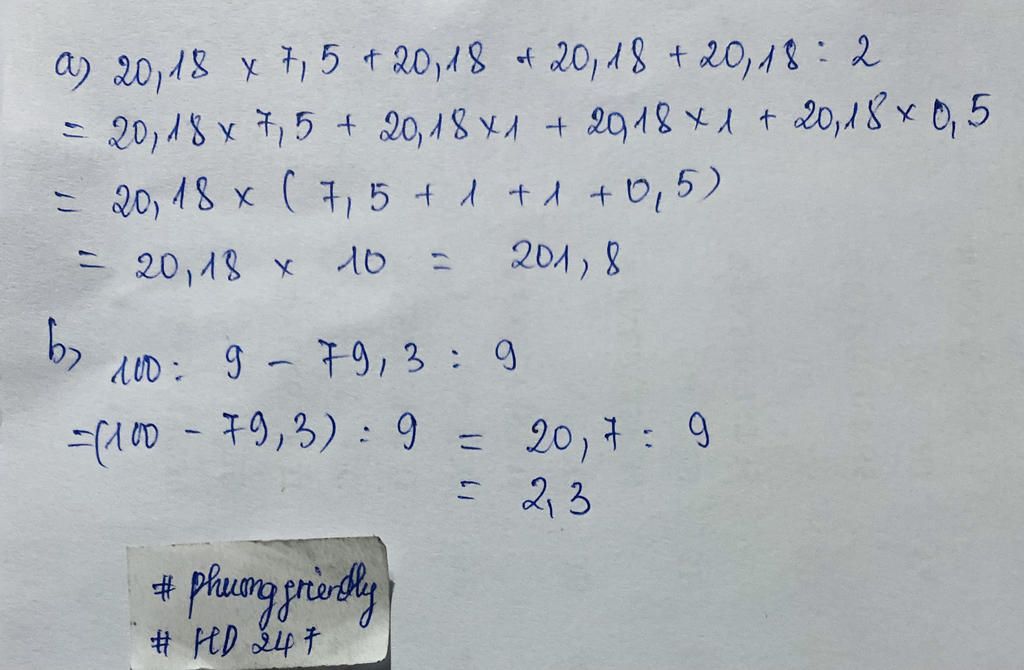 a) 20,18 x 7,5 + 20,18 + 20,18 + 20,18 : 2
= 20,18 x 7,5 + 20,18 x 1 + 20,18 x 1 + 20,18 x 0,5
= 20,18 x ( 7,5 + 1 + 1 + 0,5)
= 20,18 x 10 = 201,8
b) 100 : 9 - 79,3 : 9
=(100 - 79,3) : 9 = 20,7 : 9
= 2,3
# phuongfriendly
# HD 247